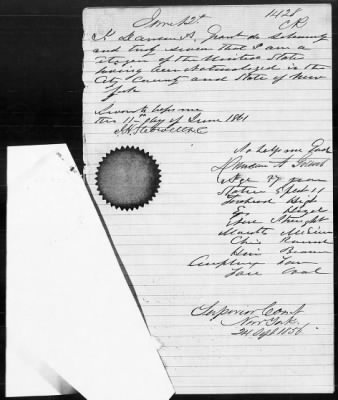 June 12th
1428
I A. Grant do solemnly
and truly swear that I am a
citizen of the United States
having been naturalized in the
City County and State of New
York
Sworn to before me
this 11th day of June 1861
So help me God
A
Age 37 years
Stature 5 feet 11
Forehead High
Eyes Hazel
Nose Straight
Mouth Medium
Chin Round
Hair Brown
Complex
Face Oval
Superior Court
New York
24 1856